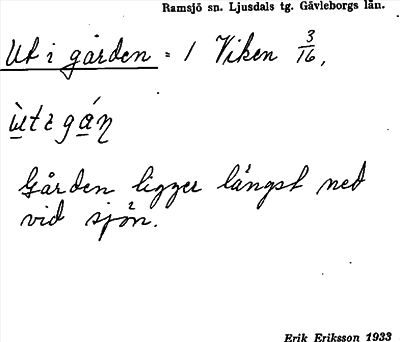 Ramsjö sn. Ljusdals tg. Gävleborgs län.
Ut i gården = 1 Viken 3/16,
ùtigán
Gården ligger längst ned
vid sjön.
Erik Eriksson 1933